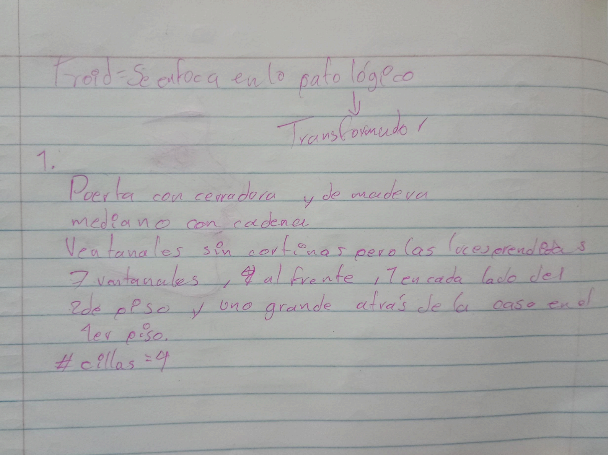 Froid = Se enfoca en lo patológico
↓
Transformador
1.
Puerta con cerradura y de madera
mediano con cadena.
Ventanales sin cortinas pero las luces prendidas
7 ventanales, 4 al frente, 1 en cada lado del
2do piso y uno grande atrás de la casa en el
1er piso.
# cillas = 4